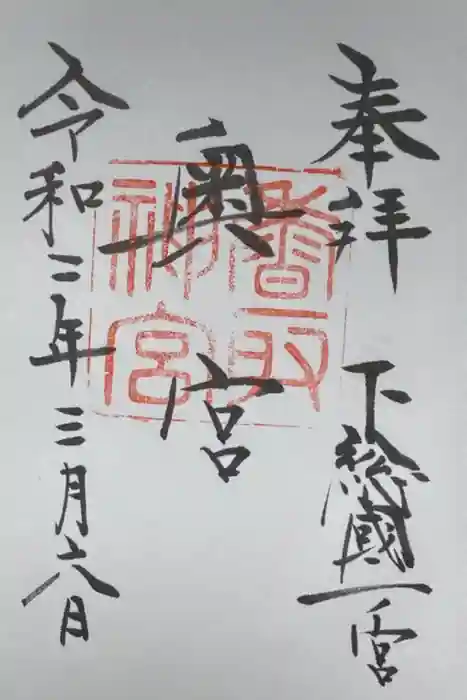 奉拝　下総國一宮
奥宮
香取神宮
令和二年三月六日